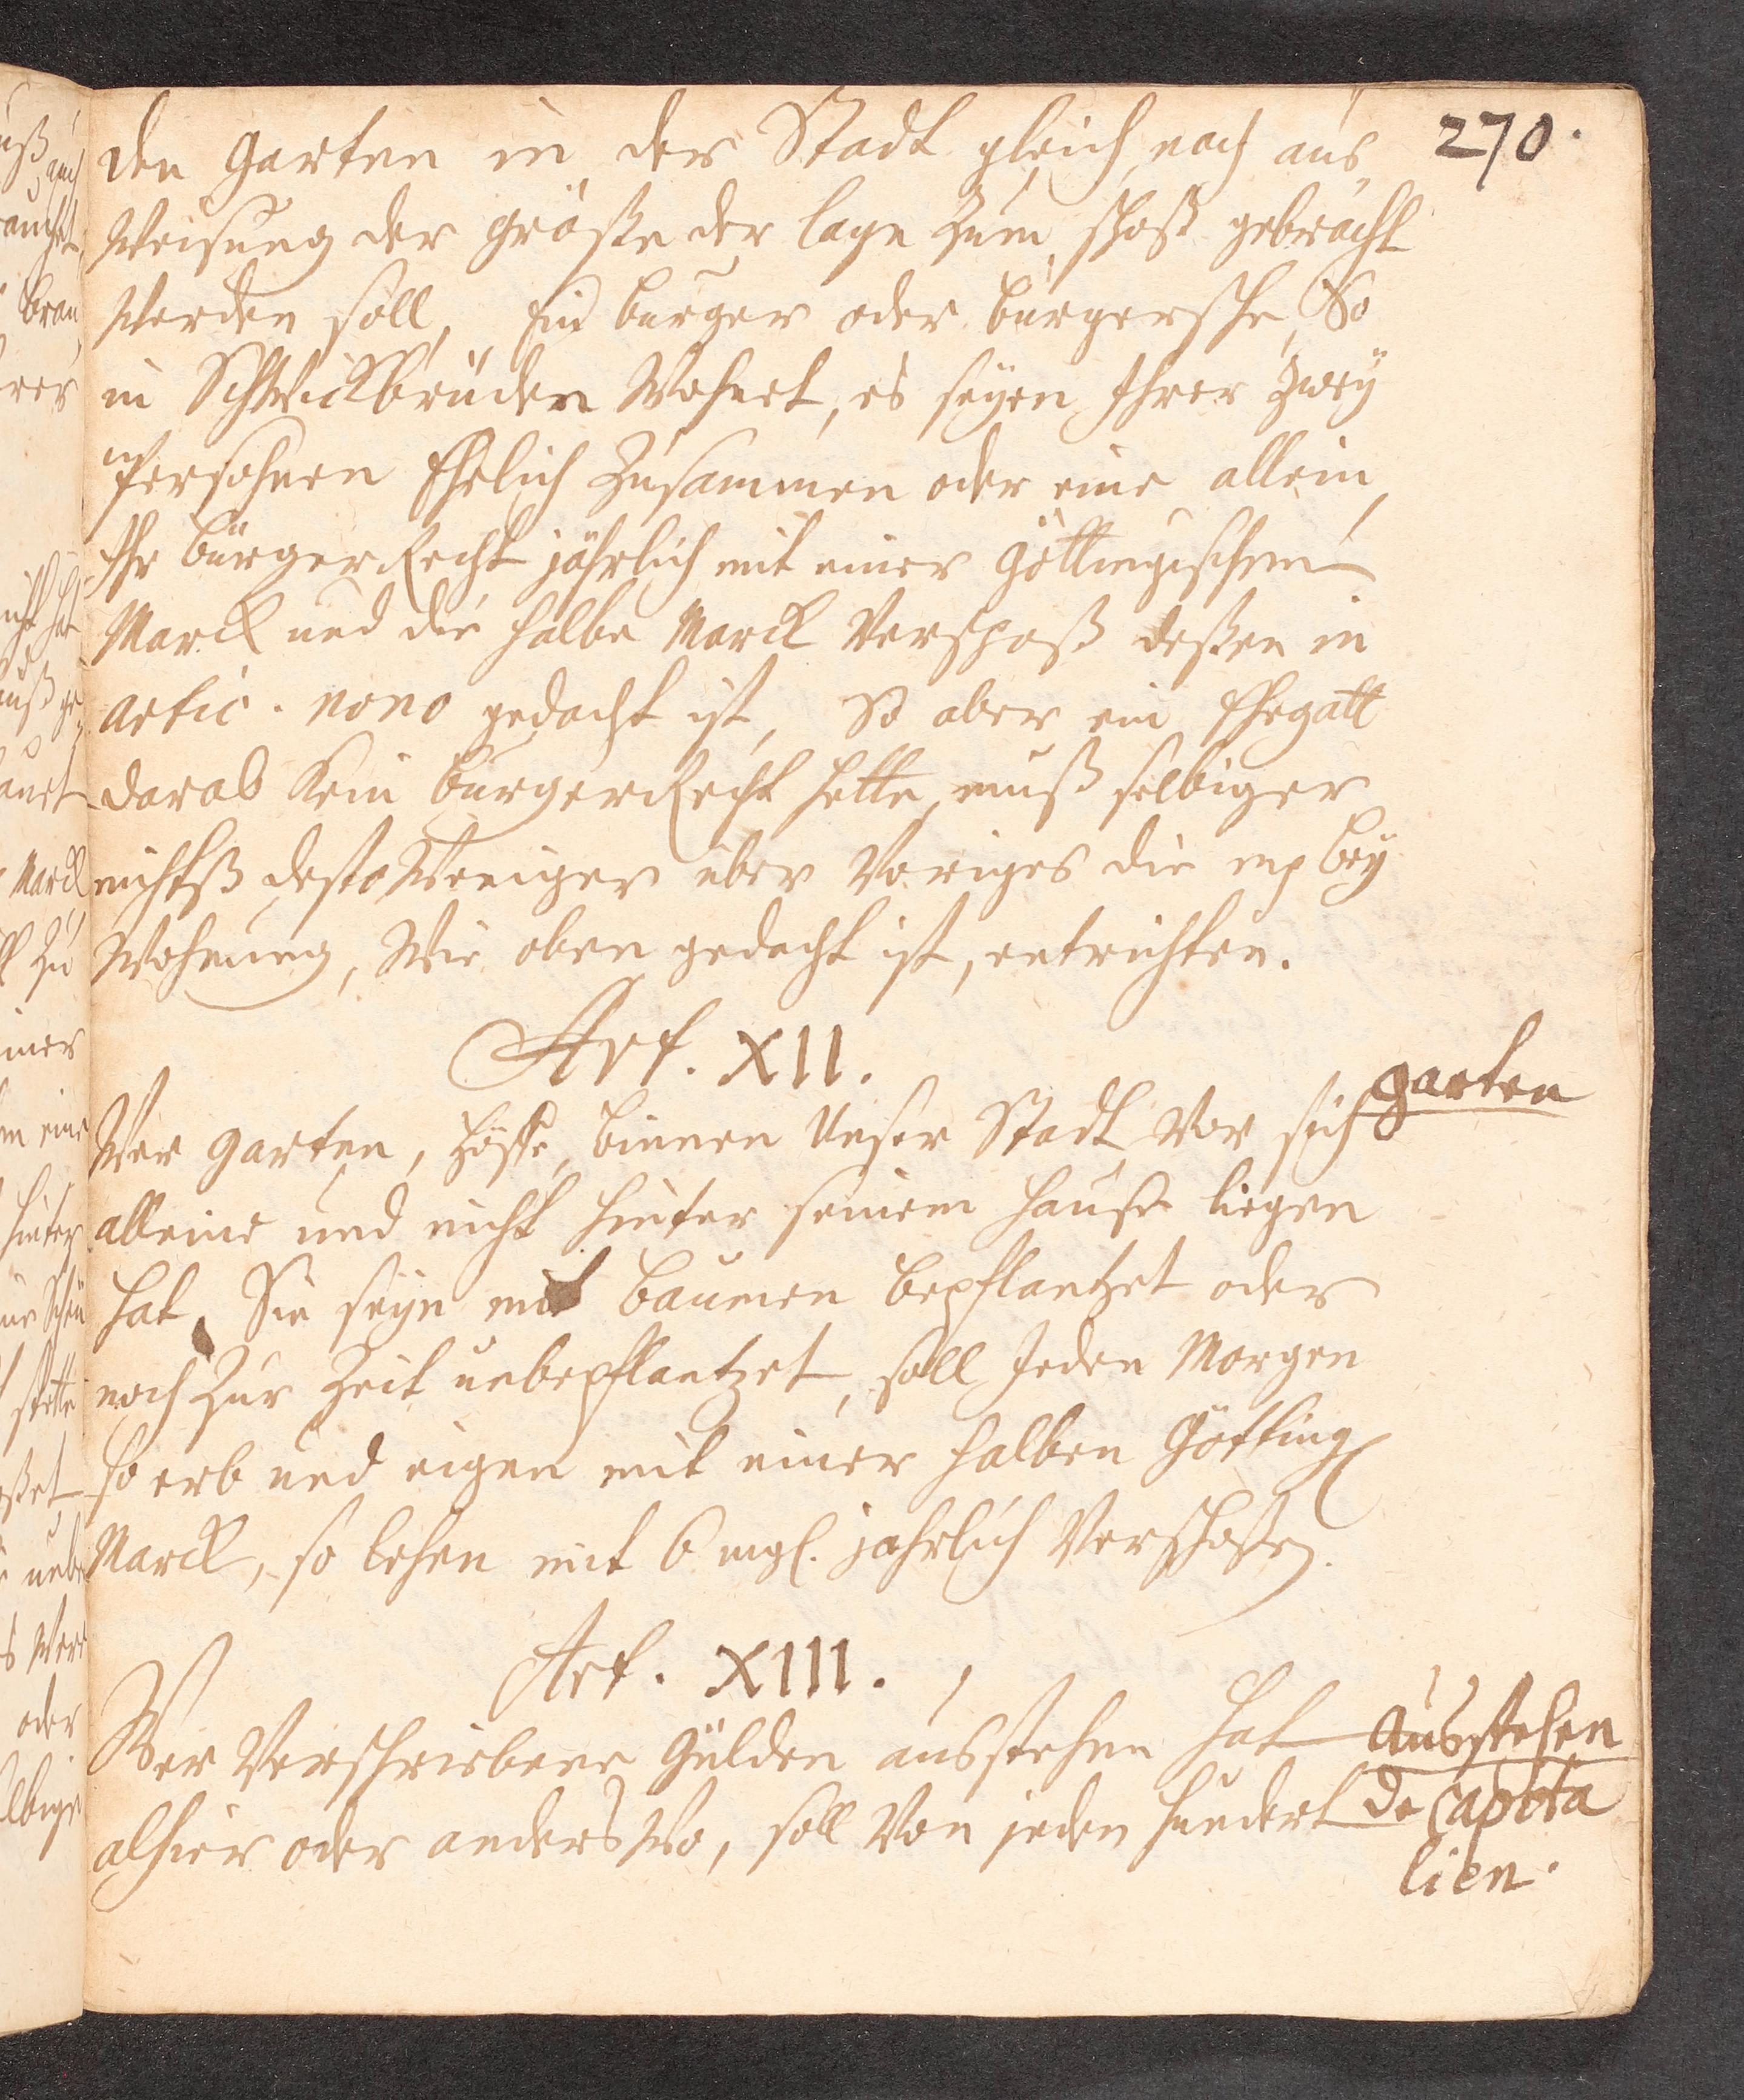 270.
den garten in der Stadt gleich nach aus,
Weisung der größe der lage Zum schoß gebracht
Werden soll, Ein burger oder burgersche, So
in Schwickbrüden Wohnet, es seyen Ihrer Zwey
Persohnen Ehelich Zusammen oder eine allein,
Ihr bürger Recht jährlich mit einer göttingischen
Marck und die halbe Marck Verschoß deßen in
artic. nono gedacht ist, So aber ein Ehegatt
darab Kein burger Recht hette, muß selbiger
nichtß desto Weniger uber Voriges die bey
Wohnung, Wie oben gedacht ist, entrichten.
Art. XII.
garten
Wer garten, Höffe, binnen Unser Stadt Vor sich
alleine und nicht hinter seinem Hause liegen
hat, Sie seyn mit baumen bepflantzet oder
noch Zur Zeit unbepflantzet, soll Jeden Morgen
so erb und eigen mit einer halben Götting
Marck, so lehen mit 6 mgl. jahrlich Verschoßen.
Art. XIII.
Wer Verschriebene Gülden ausstehen hat
Ausstehen
alhier oder anders Wo, soll Von jeden hundert
de Capita
lien.